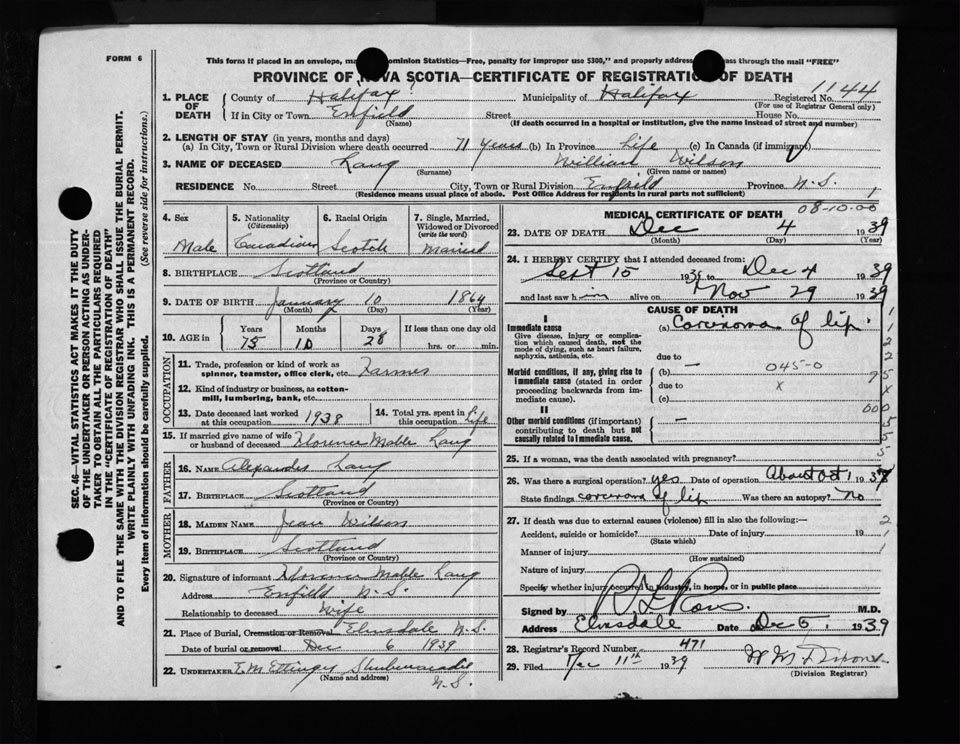 FORM 6
This form if placed in an envelope, ma ominion Statistics—Free, penalty for improper use $300," and properly address ass through the mail "FREE"
PROVINCE OF NOVA SCOTIA—CERTIFICATE OF REGISTRATION OF DEATH
1. PLACE OF DEATH County of Halifax ? Municipality of Halifax Registered No. 1144
(For use of Registrar General only)
If in City or Town Enfield (Name) Street House No.
(If death occurred in a hospital or institution, give the name instead of street and number)
2. LENGTH OF STAY (in years, months and days)
(a) In City, Town or Rural Division where death occurred 71 years (b) In Province Life (c) In Canada (if immigrant)
3. NAME OF DECEASED Lang (Surname) William Wilson (Given name or names)
RESIDENCE No. Street City, Town or Rural Division Enfield Province N.S.
(Residence means usual place of abode. Post Office Address for residents in rural parts not sufficient) 1
4. Sex Male
5. Nationality (Citizenship) Canadian
6. Racial Origin Scotch
7. Single, Married, Widowed or Divorced (write the word) Married
8. BIRTHPLACE Scotland
(Province or Country)
9. DATE OF BIRTH January 10 1864
(Month) (Day) (Year)
10. AGE in Years 75 Months 10 Days 28 If less than one day old
hrs. or min.
OCCUPATION
11. Trade, profession or work, as spinner, teamster, office clerk, etc. Farmer
12. Kind of industry or business, as cotton-mill, lumbering, bank, etc.
13. Date deceased last worked at this occupation 1938
14. Total yrs. spent in this occupation life
15. If married give name of wife or husband of deceased Florence Mable Lang
FATHER
16. NAME Alexander Lang
17. BIRTHPLACE Scotland
(Province or Country)
MOTHER
18. MAIDEN NAME Jean Wilson
19. BIRTHPLACE Scotland
(Province or Country)
20. Signature of informant Florence Mable Lang
Address Enfield N.S.
Relationship to deceased Wife
21. Place of Burial, Cremation or Removal Elmsdale N.S.
Date of burial or removal Dec 6 1939
22. UNDERTAKER E M Ettinger Shubenacadie
(Name and address) N.S.
MEDICAL CERTIFICATE OF DEATH
08-10-00
23. DATE OF DEATH Dec 4 1939
(Month) (Day) (Year)
24. I HEREBY CERTIFY that I attended deceased from:
Sept 15 193 to Dec 4 1939
and last saw him alive on Nov 29 1939
CAUSE OF DEATH
I
Immediate cause (a) Carcinoma of lip.
Give disease, injury or complication which caused death, not the mode of dying, such as heart failure, asphyxia, asthenia, etc.
due to
Morbid conditions, if any, giving rise to immediate cause (stated in order proceeding backwards from immediate cause). (b) — 045-0
due to X
(c)
II
Other morbid conditions (if important) contributing to death but not causally related to immediate cause. —
25. If a woman, was the death associated with pregnancy?
26. Was there a surgical operation? yes Date of operation About Oct 1 193
State findings carcinoma of lip Was there an autopsy? No
27. If death was due to external causes (violence) fill in also the following:—
Accident, suicide or homicide? Date of injury 19
(State which)
Manner of injury
(How sustained)
Nature of injury
Specify whether injury occurred in industry, in home, or in public place
Signed by M.D.
Address Elmsdale Date Dec 5, 1939
28. Registrar's Record Number 471
29. Filed Dec 11th 1939
(Division Registrar)
SEC. 46—VITAL STATISTICS ACT MAKES IT THE DUTY
OF THE UNDERTAKER OR PERSON ACTING AS UNDER-
TAKER TO OBTAIN ALL THE PARTICULARS REQUIRED
IN THE "CERTIFICATE OF REGISTRATION OF DEATH"
AND TO FILE THE SAME WITH THE DIVISION REGISTRAR WHO SHALL ISSUE THE BURIAL PERMIT.
WRITE PLAINLY WITH UNFADING INK. THIS IS A PERMANENT RECORD.
Every item of information should be carefully supplied. (See reverse side for instructions.)